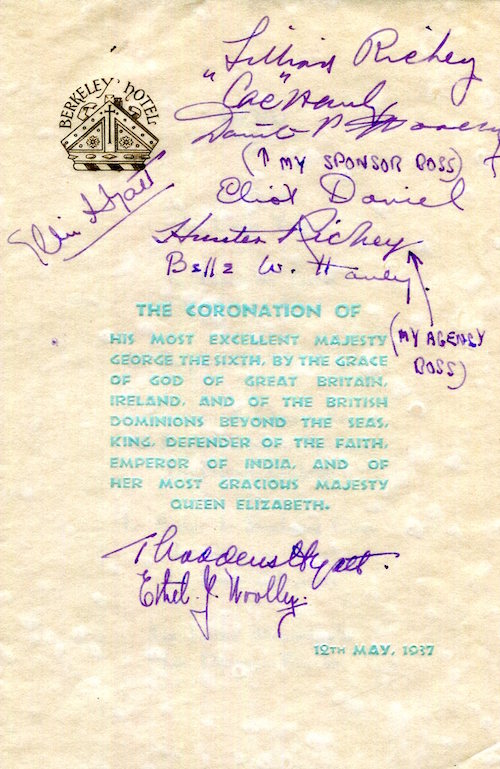 BERKELEY HOTEL
Lillian Richey
"Cac" Hanly
P.
(↑ MY SPONSOR BOSS)
Eliot Daniel
Hyatt
Hunter Richey
Belle W. Hanley
THE CORONATION OF
HIS MOST EXCELLENT MAJESTY
GEORGE THE SIXTH, BY THE GRACE
OF GOD OF GREAT BRITAIN,
IRELAND, AND OF THE BRITISH
DOMINIONS BEYOND THE SEAS,
KING, DEFENDER OF THE FAITH,
EMPEROR OF INDIA, AND OF
HER MOST GRACIOUS MAJESTY
QUEEN ELIZABETH.
(MY AGENCY
BOSS)
Thaddeus Hyatt.
Ethel J. Woolley.
12TH MAY, 1937